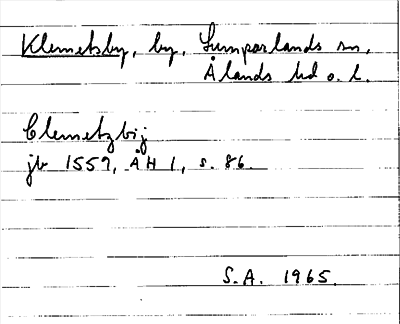 Klemetsby, by, Lumparlands sn,
Ålands hd o. l.
Clemetzbij
jb 1559, ÅH 1, s. 86.
S.A. 1965.